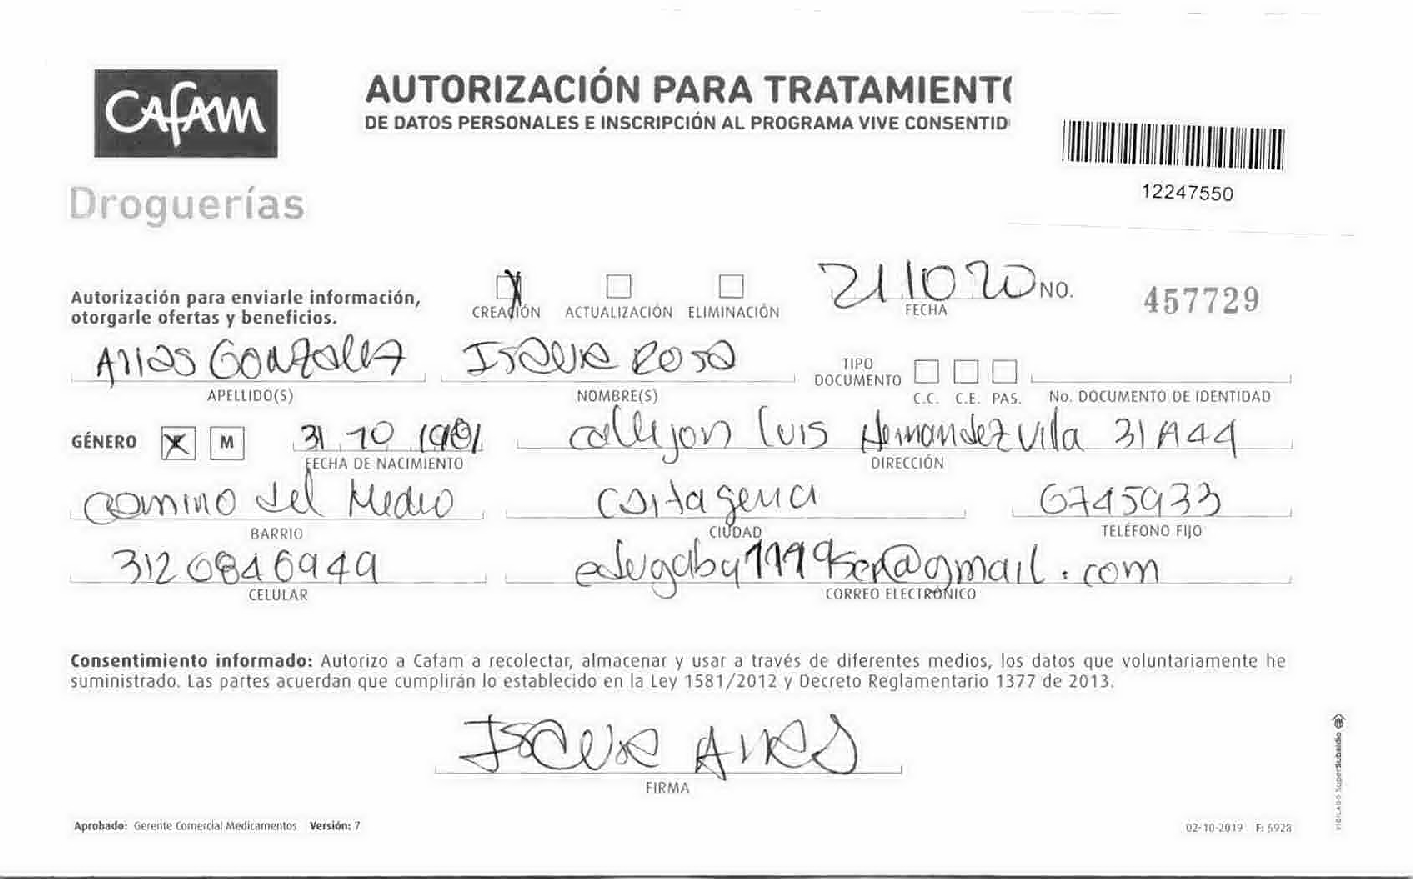 CAFAM
Droguerías
AUTORIZACIÓN PARA TRATAMIENTO
DE DATOS PERSONALES E INSCRIPCIÓN AL PROGRAMA VIVE CONSENTID
12247550
Autorización para enviarle información,
otorgarle ofertas y beneficios.
X
CREACIÓN ACTUALIZACIÓN ELIMINACIÓN
21 10 20 NO. 457729
FECHA
Arias González Isaura Rosa TIPO DOCUMENTO
APELLIDO(S) NOMBRE(S) C.C. C.E. PAS. No. DOCUMENTO DE IDENTIDAD
GÉNERO X M 31 10 1981 callejon Luis Hernandez Vila 31A44
FECHA DE NACIMIENTO DIRECCIÓN
camino del Medio Cartagena 6745933
BARRIO CIUDAD TELÉFONO FIJO
3126846949 @gmail.com
CELULAR CORREO ELECTRÓNICO
Consentimiento informado: Autorizo a Cafam a recolectar, almacenar y usar a través de diferentes medios, los datos que voluntariamente he
suministrado. Las partes acuerdan que cumplirán lo establecido en la Ley 1581/2012 y Decreto Reglamentario 1377 de 2013.
Isaura Arias
FIRMA
Aprobado: Gerente Comercial Medicamentos Versión: 7
02-10-2019 F: 5928
VIGILADO SuperSubsidio